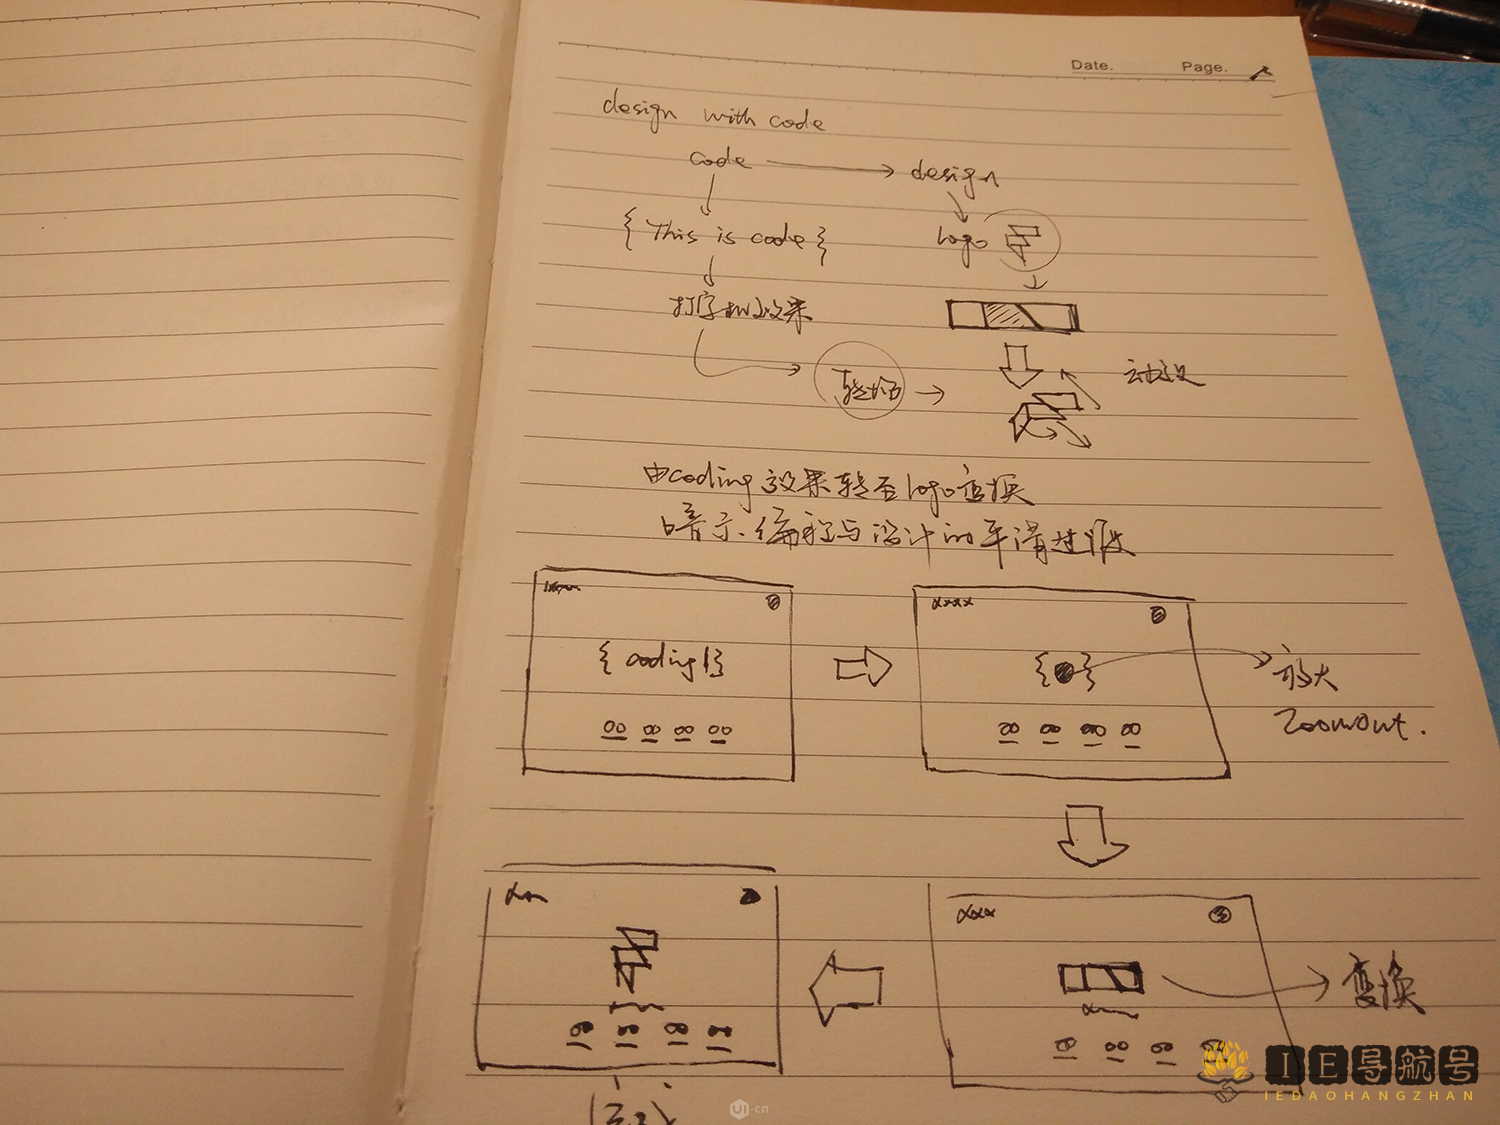 Date. Page.
design with code
code design
{ This is code } logo
打字机效果
转场
动效
由coding效果转至logo变换
暗示编程与设计的平滑过渡
xxxx
{ coding | }
{ }
放大
Zoomout.
xxx
变换
IE导航号
IEDAOHANGZHAN
UI·cn